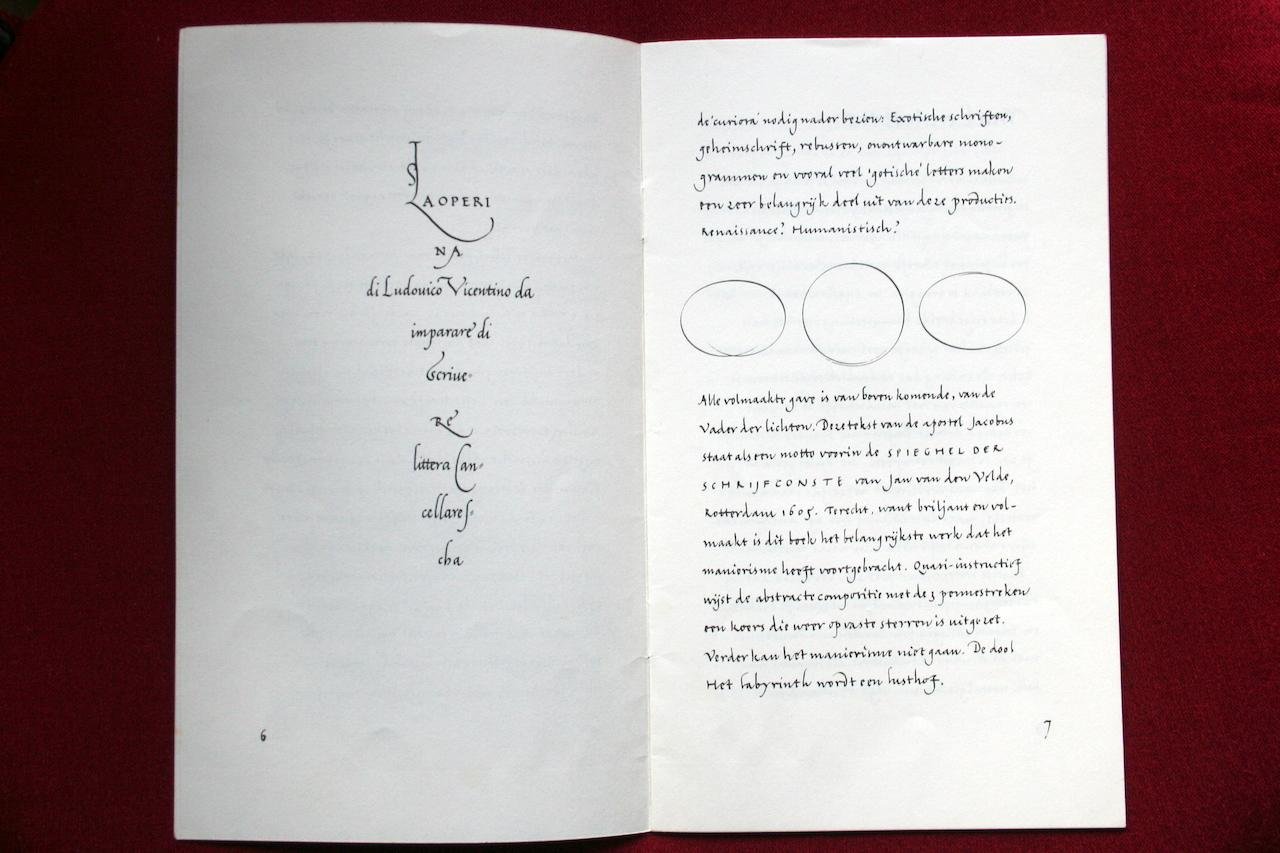 LAOPERI
NA
di Ludouico Vicentino da
imparare di
scriue-
RE
littera Can-
cellares-
cha
6
de 'curiora' nodig nader bezien: Exotische schriften,
geheimschrift, rebussen, onontwarbare mono-
grammen en vooral veel 'gotische' letters maken
een zeer belangrijk deel uit van deze producties.
Renaissance? Humanistisch?
Alle volmaakte gave is van boven komende, van de
Vader der lichten. Deze tekst van de apostel Jacobus
staat als een motto voorin de SPIEGHEL DER
SCHRIJFCONSTE van Jan van den Velde,
Rotterdam 1605. Terecht, want briljant en vol-
maakt is dit boek het belangrijkste werk dat het
manierisme heeft voortgebracht. Quasi-instructief
wijst de abstracte compositie met de 3 pennestreken
een koers die weer op vaste sterren is uitgezet.
Verder kan het manierisme niet gaan. De dool
Het labyrinth wordt een lusthof.
7